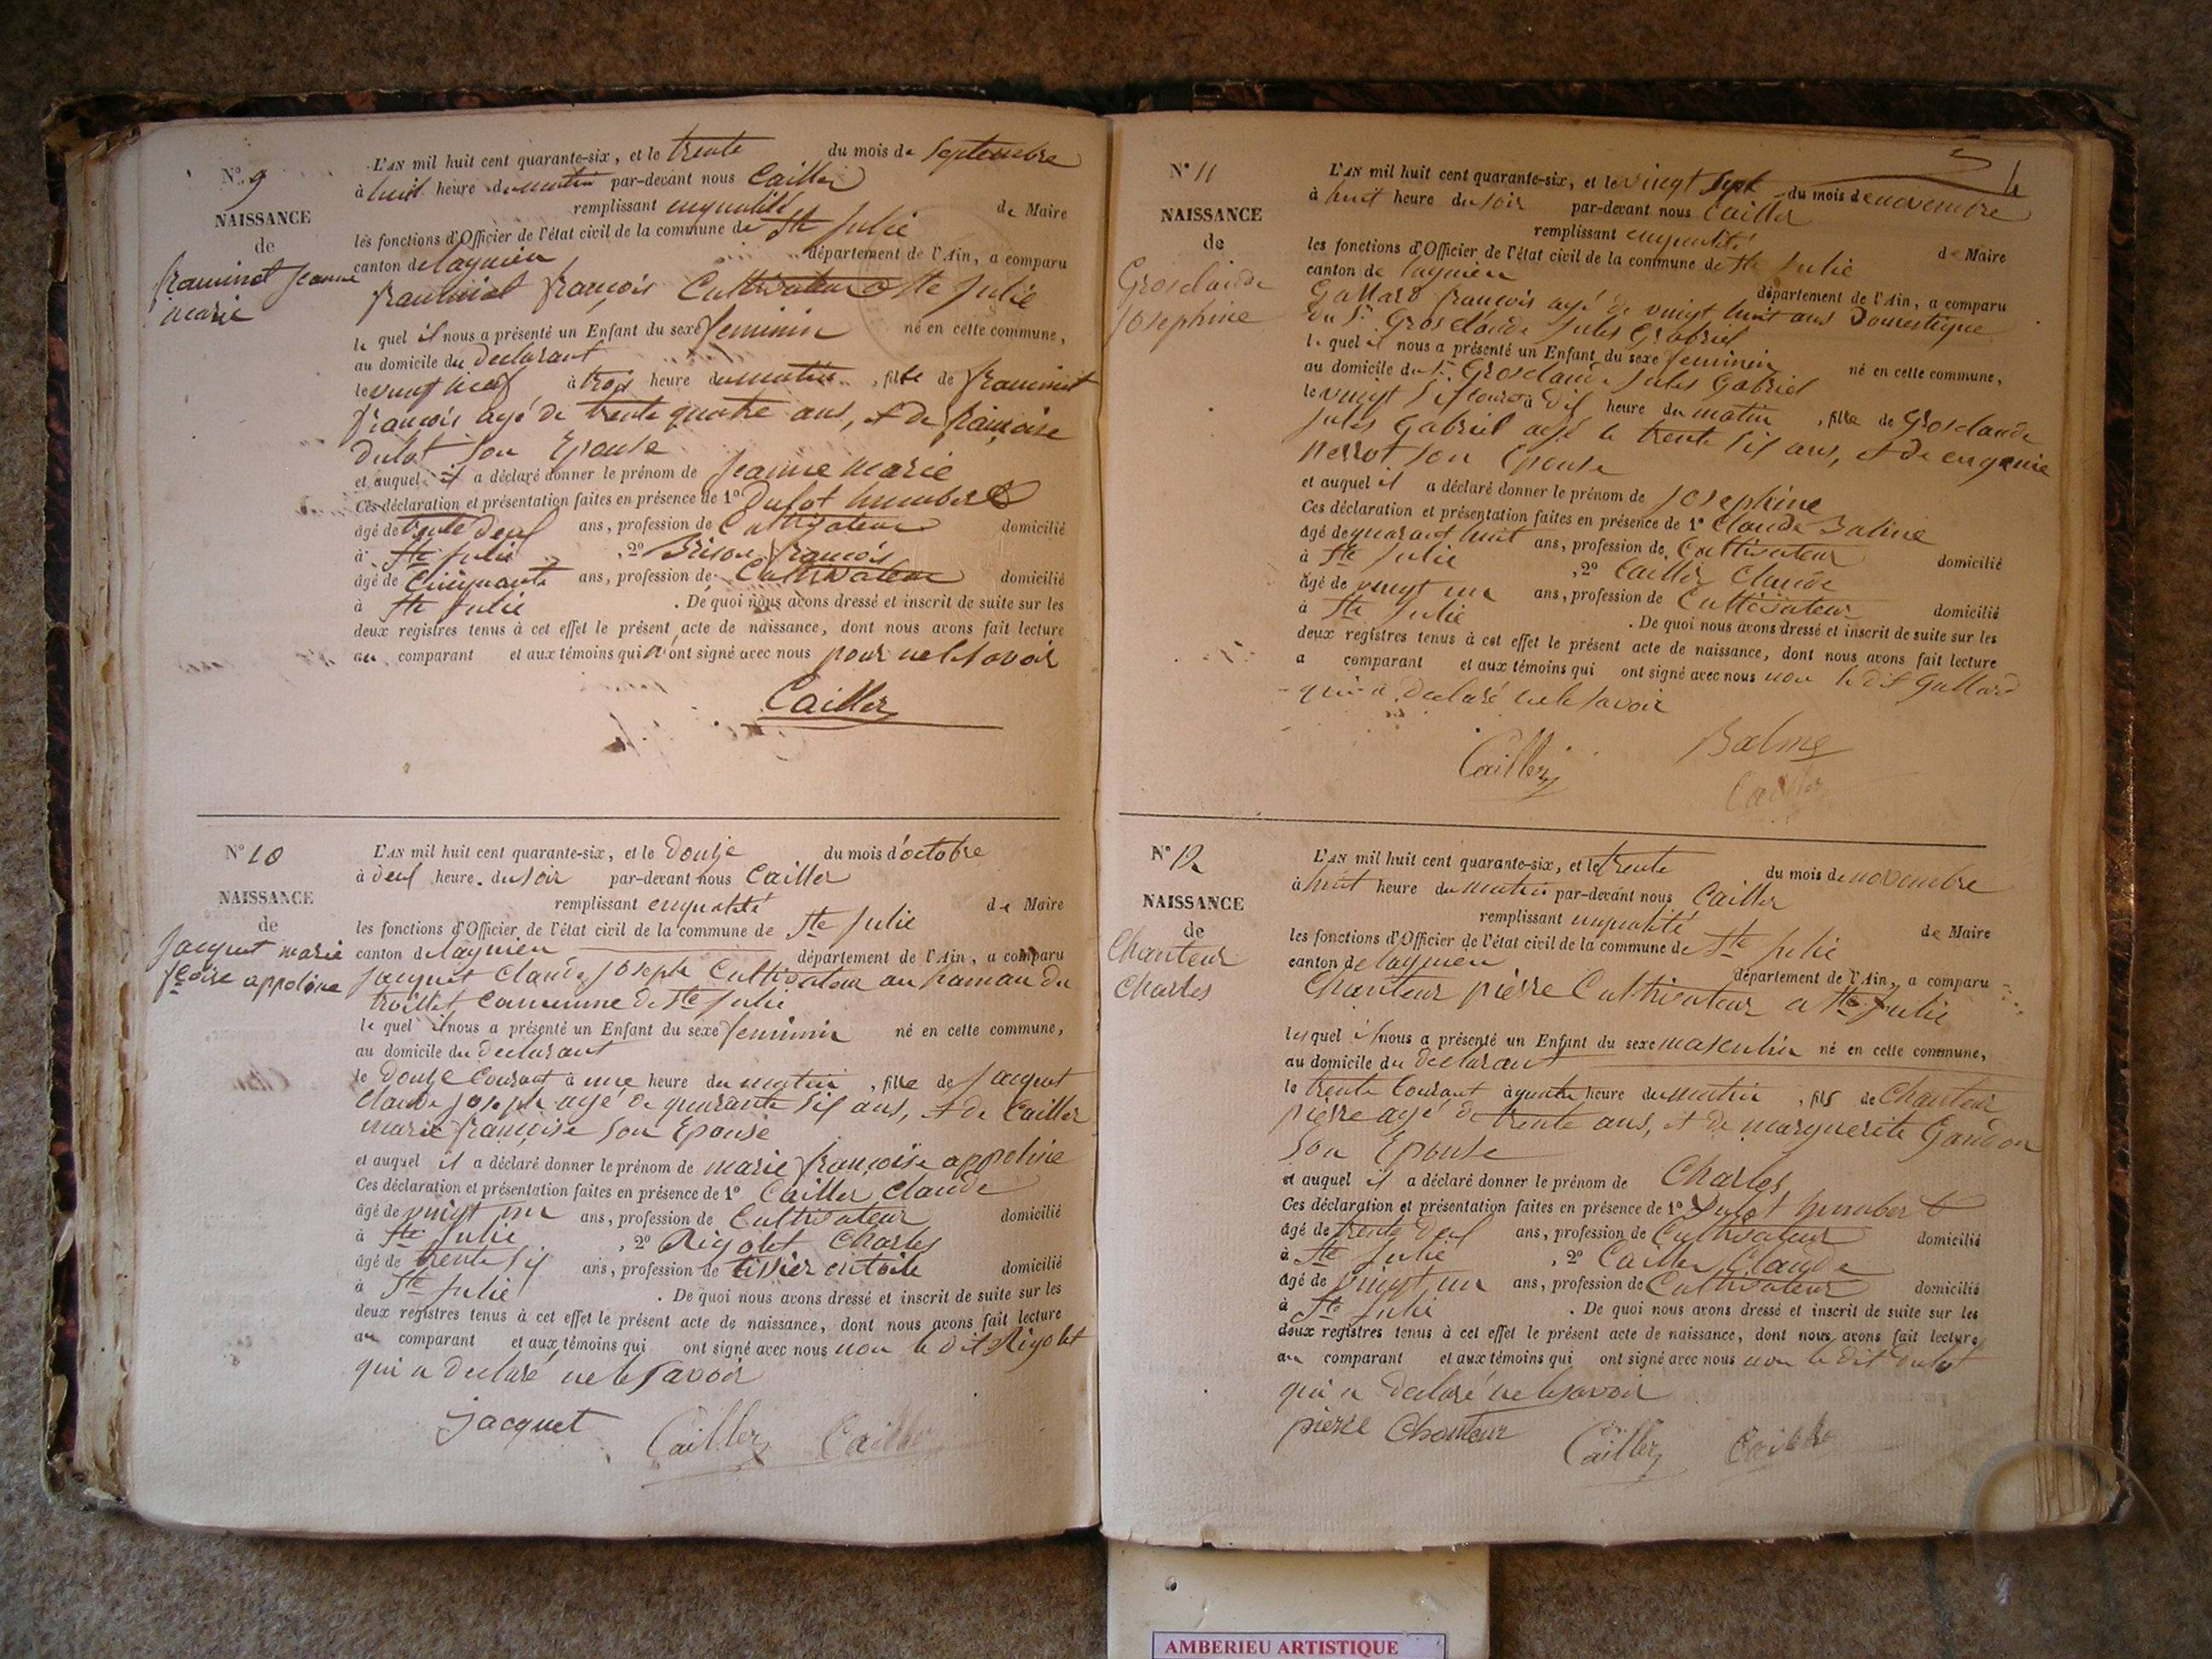 N° 9
NAISSANCE
de
framinet Jeanne
marie
L'AN mil huit cent quarante-six, et le trente du mois de Septembre
à huit heure du matin par-devant nous Cailler
remplissant enqualité de Maire
les fonctions d'Officier de l'état civil de la commune de Ste Julie
canton de lagnieu département de l'Ain, a comparu
framinet françois Cultivateur a Ste Julie
le quel il nous a présenté un Enfant du sexe feminin né en cette commune,
au domicile du declarant
le vingt neuf à trois heure du matin, fille de framinet
françois agé de trente quatre ans, et de françoise
dulot Son Epouse
et auquel il a déclaré donner le prénom de Jeanne marie
Ces déclaration et présentation faites en présence de 1° Dulot humbert
âgé de trente deux ans, profession de Cultivateur domicilié
à Ste Julie, 2° Brison françois
âgé de Cinquante ans, profession de Cultivateur domicilié
à Ste Julie. De quoi nous avons dressé et inscrit de suite sur les
deux registres tenus à cet effet le présent acte de naissance, dont nous avons fait lecture
au comparant et aux témoins qui n'ont signé avec nous pour ne le savoir
Cailler
N° 10
NAISSANCE
de
Jacquet marie
fçoise appoline
L'AN mil huit cent quarante-six, et le Douze du mois d'octobre
à deux heure du soir par-devant nous Cailler
remplissant enqualité de Maire
les fonctions d'Officier de l'état civil de la commune de Ste Julie
canton de lagnieu département de l'Ain, a comparu
Jacquet Claude Joseph Cultivateur au hamau du
troillet Commune de Ste Julie
le quel il nous a présenté un Enfant du sexe feminin né en cette commune,
au domicile du declarant
le Douze Courant à une heure du matin, fille de Jacquet
Claude Joseph agé de quarante Six ans, et de Cailler
marie françoise Son Epouse
et auquel il a déclaré donner le prénom de marie françoise appoline
Ces déclaration et présentation faites en présence de 1° Cailler Claude
âgé de vingt un ans, profession de Cultivateur domicilié
à Ste Julie, 2° Rigolet Charles
âgé de trente Six ans, profession de tissier en toile domicilié
à Ste Julie. De quoi nous avons dressé et inscrit de suite sur les
deux registres tenus à cet effet le présent acte de naissance, dont nous avons fait lecture
au comparant et aux témoins qui ont signé avec nous non le dit Rigolet
qui a declaré ne le Savoir
Jacquet Cailler Cailler
N° 11
NAISSANCE
de
Grosclaude
Josephine
L'AN mil huit cent quarante-six, et le vingt Sept du mois de novembre
à huit heure du soir par-devant nous Cailler
remplissant enqualité de Maire
les fonctions d'Officier de l'état civil de la commune de Ste Julie
canton de lagnieu département de l'Ain, a comparu
Gallard françois agé de vingt huit ans Domestique
du Sr. Grosclaude Jules Gabriel
le quel il nous a présenté un Enfant du sexe feminin né en cette commune,
au domicile du Sr. Grosclaude Jules Gabriel
le vingt Six courant à dix heure du matin, fille de Grosclaude
Jules Gabriel agé de trente Six ans, et de eugenie
perrot Son Epouse
et auquel il a déclaré donner le prénom de Josephine
Ces déclaration et présentation faites en présence de 1° Claude Balme
âgé de quarant huit ans, profession de Cultivateur domicilié
à Ste Julie, 2° Cailler Claude
âgé de vingt un ans, profession de Cultivateur domicilié
à Ste Julie. De quoi nous avons dressé et inscrit de suite sur les
deux registres tenus à cet effet le présent acte de naissance, dont nous avons fait lecture
a comparant et aux témoins qui ont signé avec nous non le dit Gallard
qui a declaré ne le savoir
Cailler Balme
Cailler
N° 12
NAISSANCE
de
Chanteur
Charles
L'AN mil huit cent quarante-six, et le trente du mois de novembre
à huit heure du matin par-devant nous Cailler
remplissant enqualité de Maire
les fonctions d'Officier de l'état civil de la commune de Ste Julie
canton de lagnieu département de l'Ain, a comparu
Chanteur pierre Cultivateur a Ste Julie
lequel il nous a présenté un Enfant du sexe masculin né en cette commune,
au domicile du declarant
le trente Courant à quatre heure du matin, fils de Chanteur
pierre agé de trente ans, et de marguerite Gandon
Son Epouse
et auquel il a déclaré donner le prénom de Charles
Ces déclaration et présentation faites en présence de 1° Dulot humbert
âgé de trente deux ans, profession de Cultivateur domicilié
à Ste Julie, 2° Cailler Claude
âgé de vingt un ans, profession de Cultivateur domicilié
à Ste Julie. De quoi nous avons dressé et inscrit de suite sur les
deux registres tenus à cet effet le présent acte de naissance, dont nous avons fait lecture
au comparant et aux témoins qui ont signé avec nous non le dit Dulot
qui a declaré ne le savoir
pierre Chanteur Cailler Cailler
AMBERIEU ARTISTIQUE